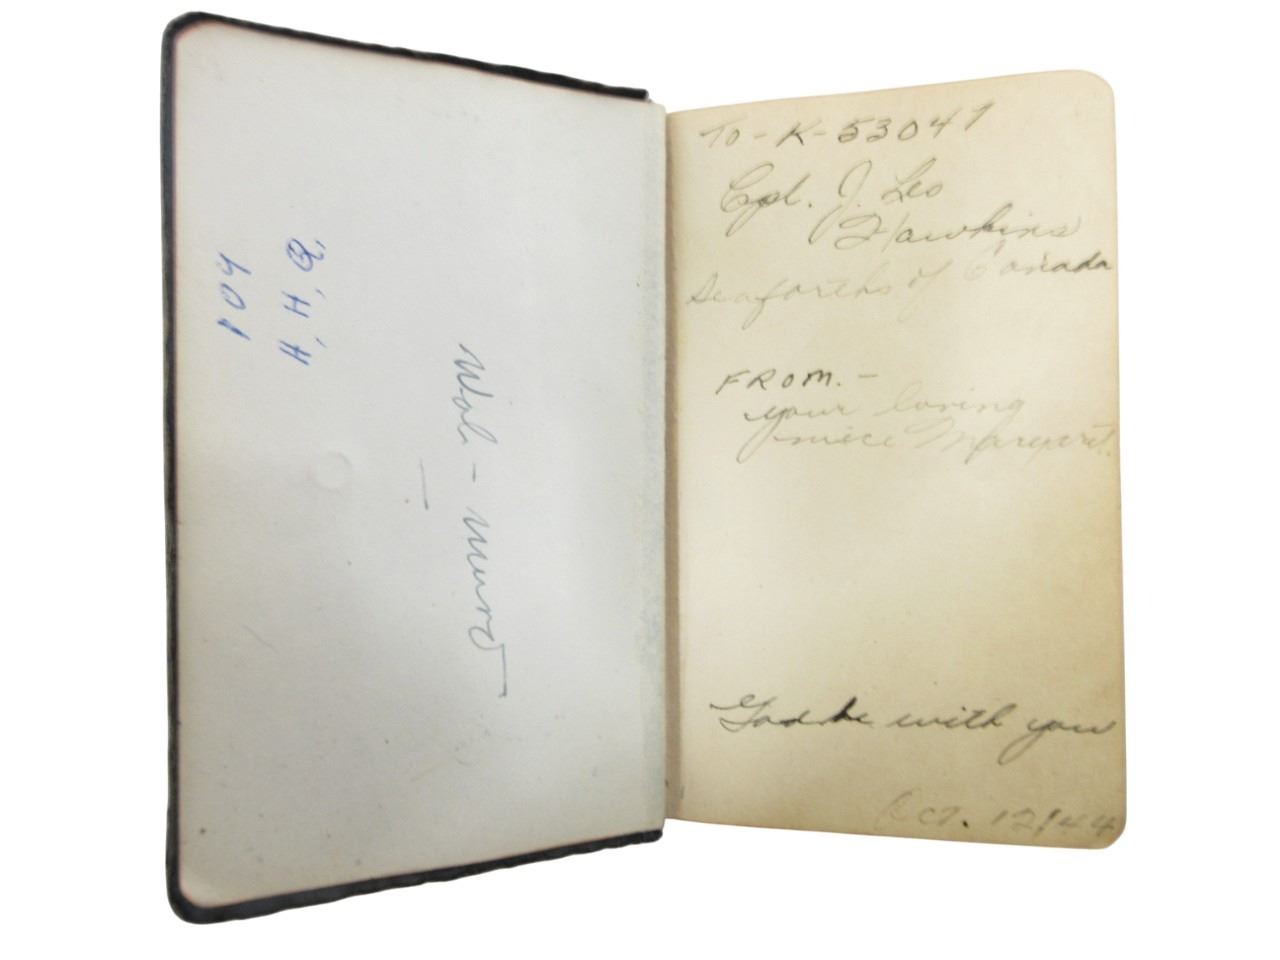 H. H. B.
109
Wol - munro
To - K - 53047
Cpl. J. Leo
Hawkins
Seaforths of Canada
FROM. -
your loving
niece Margaret.
God be with you
Oct. 12/44